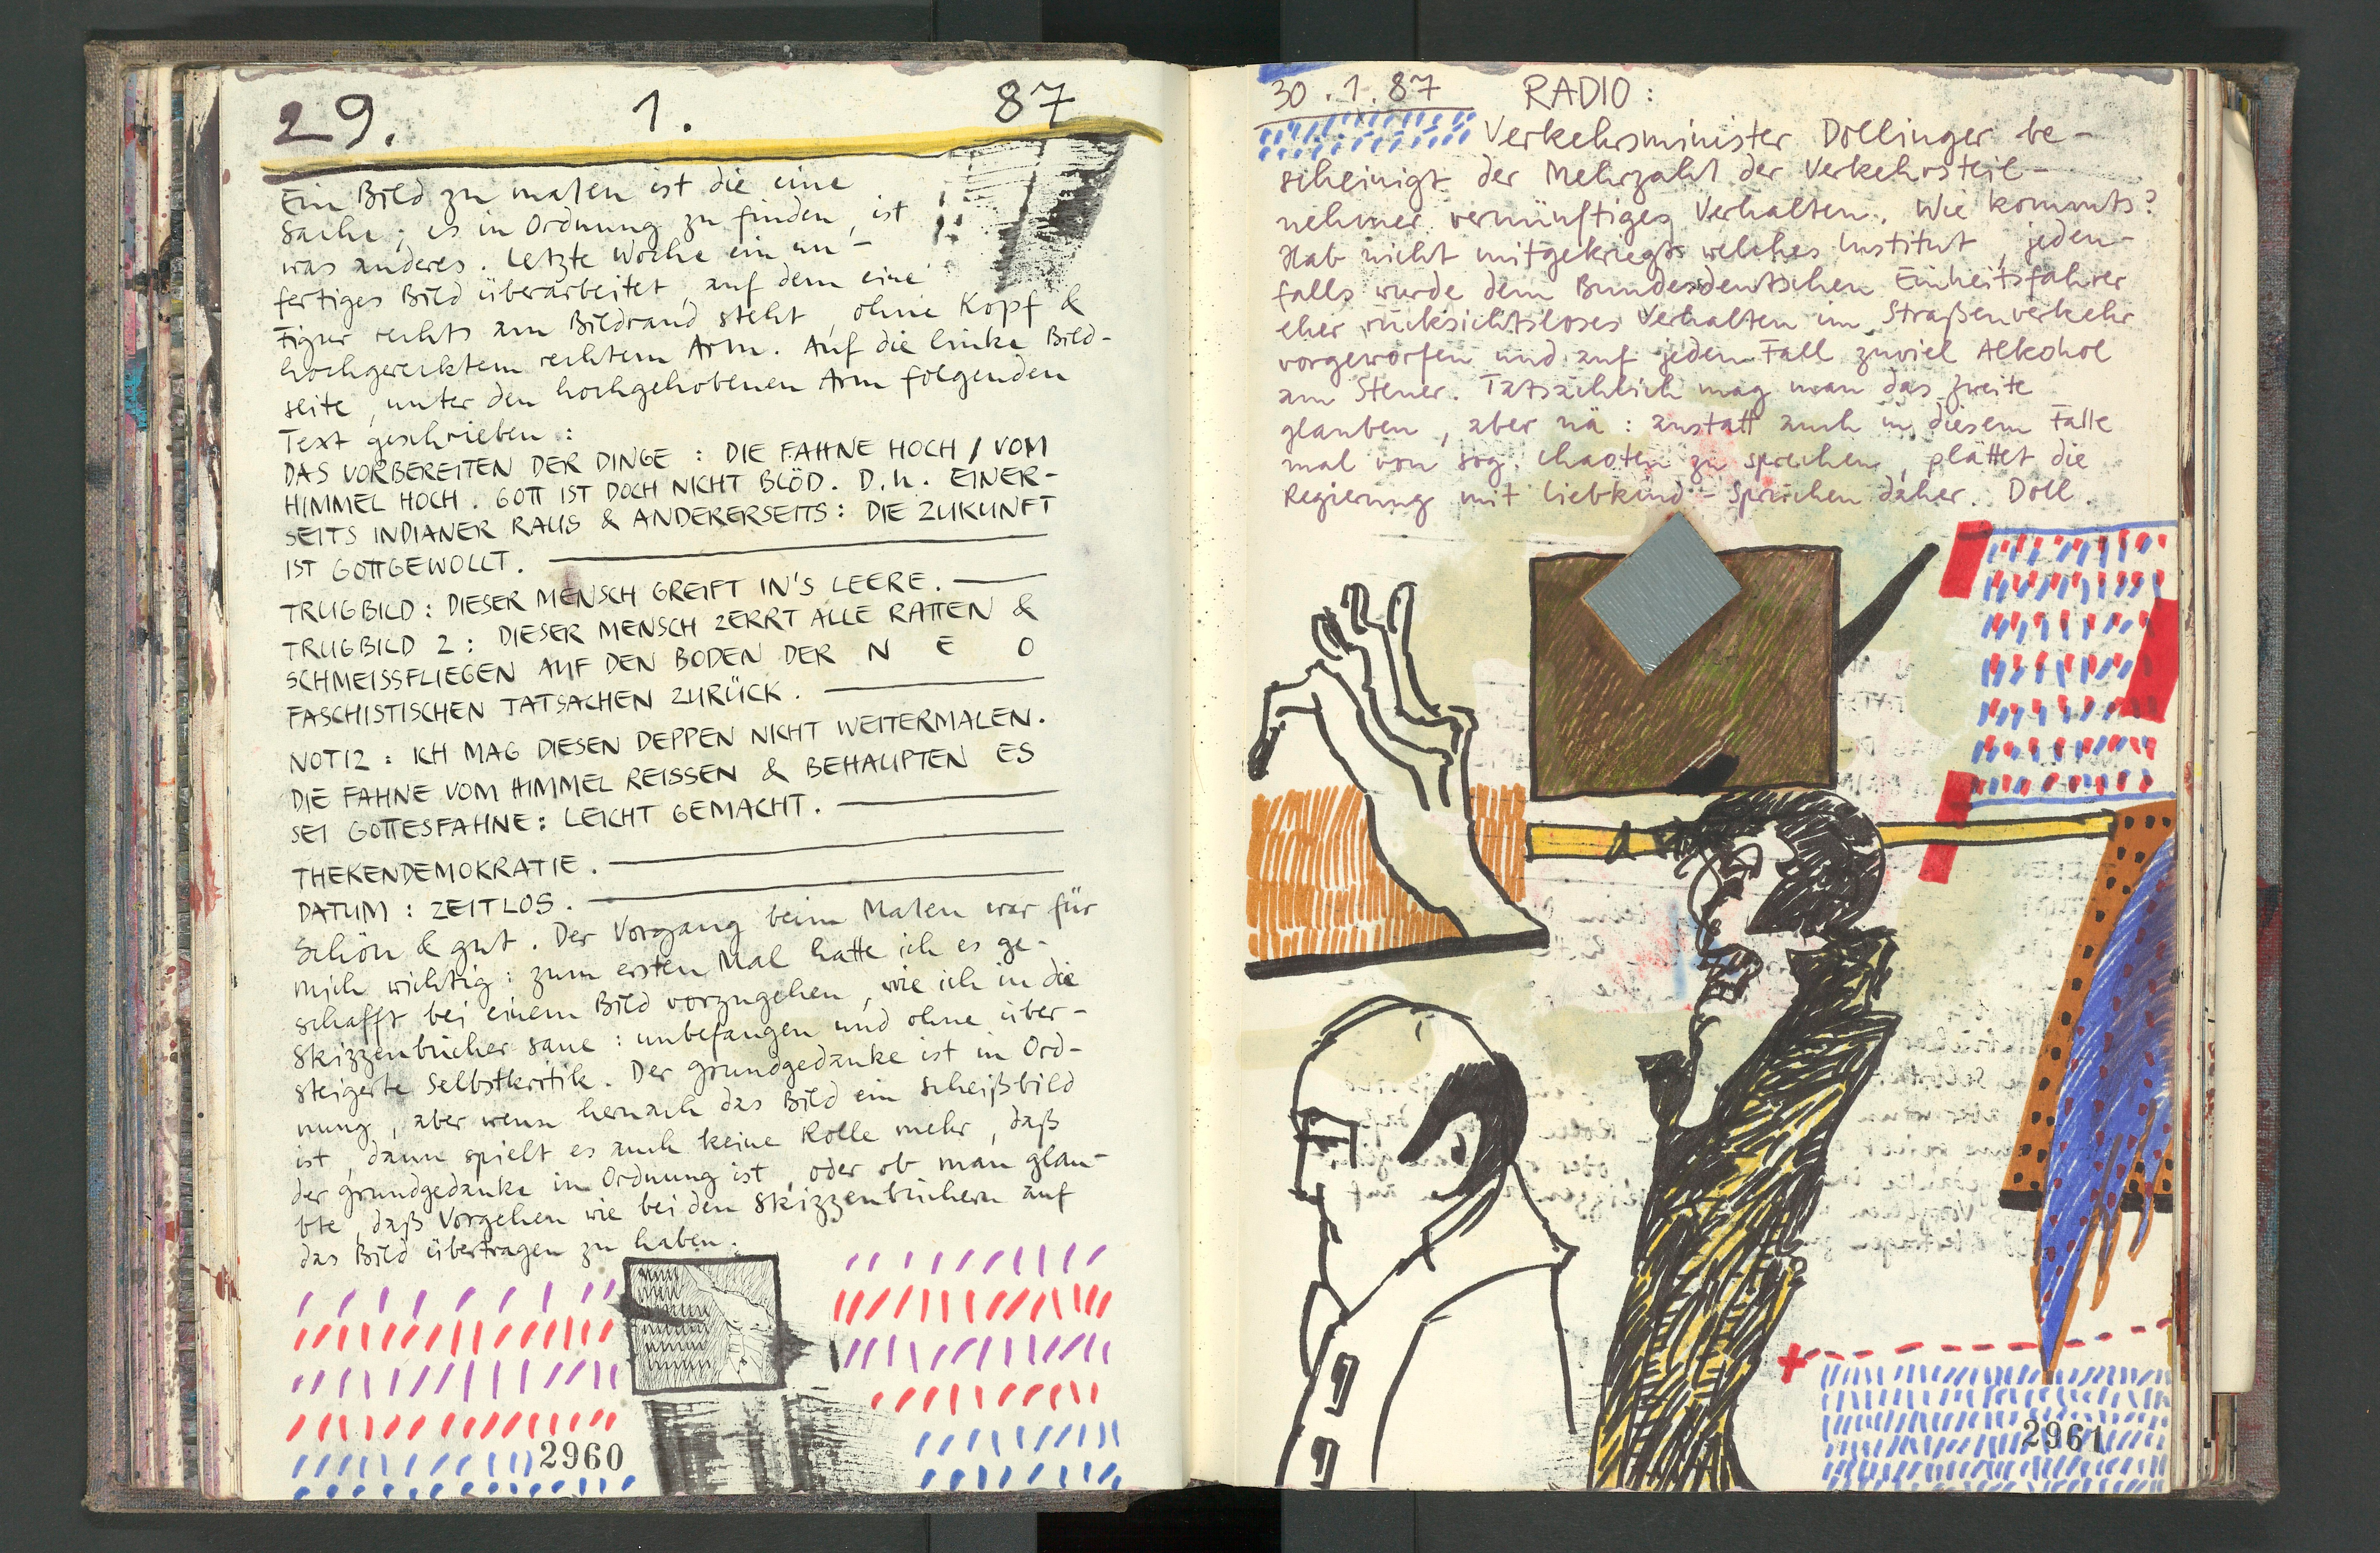 29. 1. 87
Ein Bild zu malen ist die eine
Sache; es in Ordnung zu finden, ist
was anderes. Letzte Woche ein un-
fertiges Bild überarbeitet, auf dem eine
Figur rechts am Bildrand steht, ohne Kopf &
hochgerecktem rechtem Arm. Auf die linke Bild-
seite, unter den hochgehobenen Arm folgenden
Text geschrieben:
DAS VORBEREITEN DER DINGE: DIE FAHNE HOCH / VOM
HIMMEL HOCH. GOTT IST DOCH NICHT BLÖD. D.h. EINER-
SEITS INDIANER RAUS & ANDERERSEITS: DIE ZUKUNFT
IST GOTTGEWOLLT.
TRUGBILD: DIESER MENSCH GREIFT IN'S LEERE.
TRUGBILD 2: DIESER MENSCH ZERRT ALLE RATTEN &
SCHMEISSFLIEGEN AUF DEN BODEN DER N E O
FASCHISTISCHEN TATSACHEN ZURÜCK.
NOTIZ: ICH MAG DIESEN DEPPEN NICHT WEITERMALEN.
DIE FAHNE VOM HIMMEL REISSEN & BEHAUPTEN ES
SEI GOTTESFAHNE: LEICHT GEMACHT.
THEKENDEMOKRATIE.
DATUM: ZEITLOS.
Schön & gut. Der Vorgang beim Malen war für
mich wichtig: zum ersten Mal hatte ich es ge-
schafft bei einem Bild vorzugehen, wie ich in die
Skizzenbücher saue: unbefangen und ohne über-
steigerte Selbstkritik. Der Grundgedanke ist in Ord-
nung, aber wenn hernach das Bild ein Scheißbild
ist, dann spielt es auch keine Rolle mehr, daß
der Grundgedanke in Ordnung ist, oder ob man glau-
bte, daß Vorgehen wie bei den Skizzenbüchern auf
das Bild übertragen zu haben.
2960
30.1.87 RADIO:
Verkehrsminister Dollinger be-
scheinigt der Mehrzahl der Verkehrsteil-
nehmer vernünftiges Verhalten. Wie kommts?
Hab nicht mitgekriegt welches Institut, jeden-
falls wurde dem Bundesdeutschen Einheitsfahrer
eher rücksichtsloses Verhalten im Straßenverkehr
vorgeworfen und auf jeden Fall zuviel Alkohol
am Steuer. Tatsächlich mag man das zweite
glauben, aber nä: anstatt auch in diesem Falle
mal von sog. Chaoten zu sprechen, plättet die
Regierung mit Liebkind-Sprüchen daher. Doll.
2961